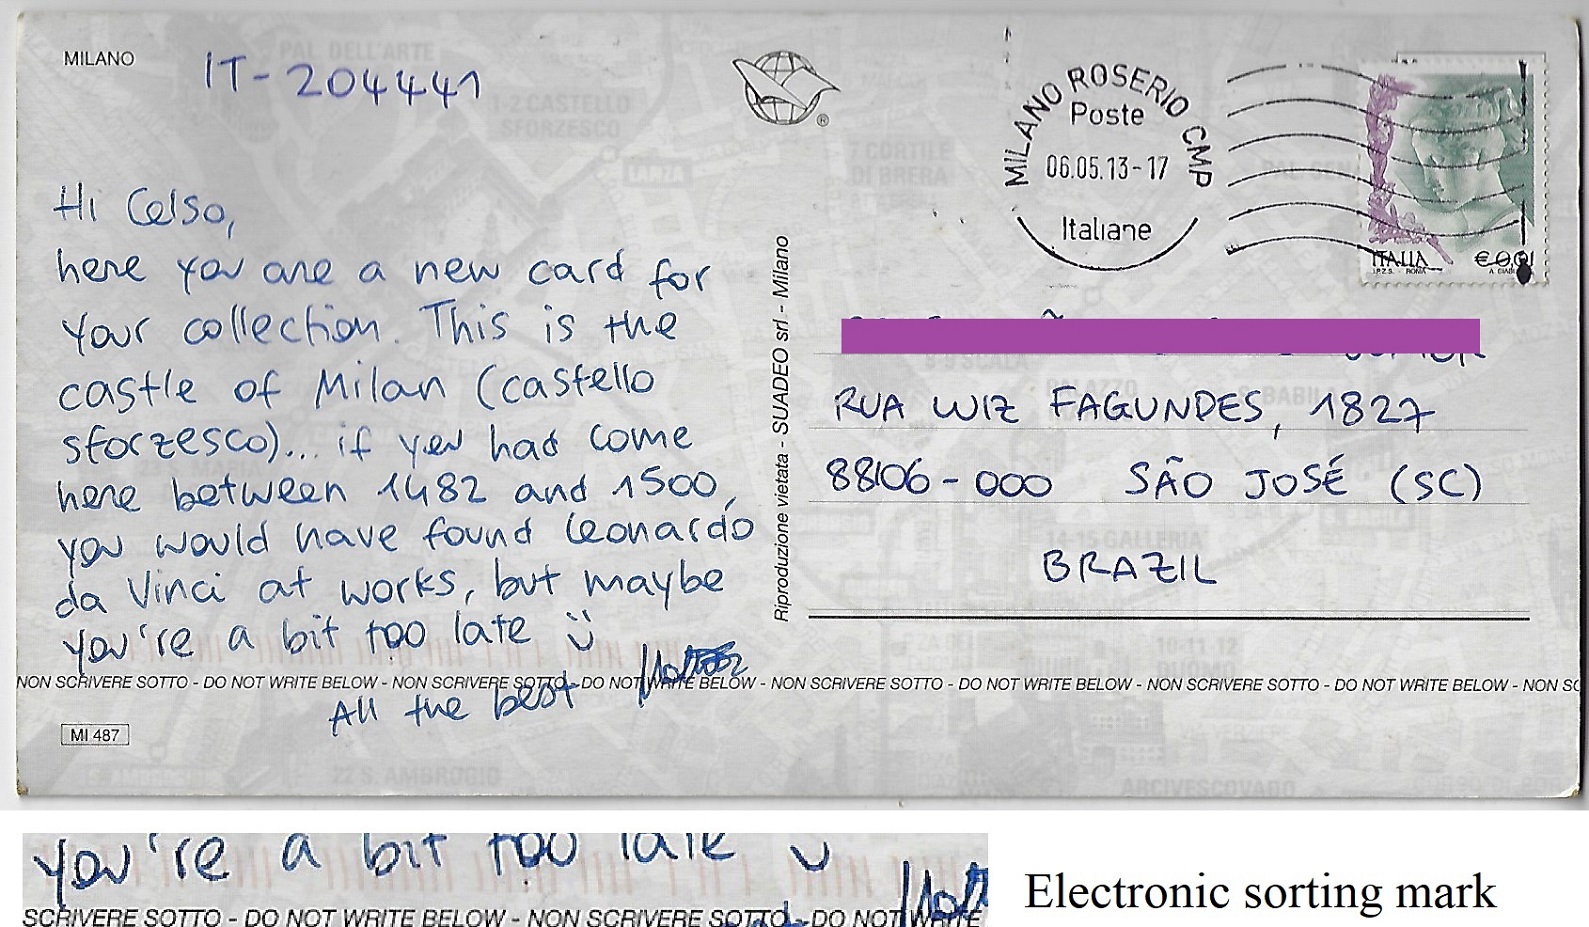 MILANO
IT-204441
Hi Celso,
here you are a new card for
your collection. This is the
castle of Milan (castello
sforzesco)... if you had come
here between 1482 and 1500,
you would have found Leonardo
da Vinci at works, but maybe
you're a bit too late
All the best
NON SCRIVERE SOTTO - DO NOT WRITE BELOW - NON SCRIVERE SOTTO - DO NOT WRITE BELOW - NON SCRIVERE SOTTO - DO NOT WRITE BELOW - NON SCRIVERE SOTTO - DO NOT WRITE BELOW - NON SC
MI 487
Riproduzione vietata - SUADEO srl - Milano
®
MILANO ROSERIO CMP
Poste
06.05.13-17
Italiane
ITALIA € 0,01
I.P.Z.S. - ROMA
RUA LUIZ FAGUNDES, 1827
88106-000 SÃO JOSÉ (SC)
BRAZIL
PAL. DELL'ARTE
1-2 CASTELLO
SFORZESCO
LANZA
7 CORTILE
DI BRERA
PALAZZO
S. BABILA
14-15 GALLERIA
10-11-12
DUOMO
22 S. AMBROGIO
ARCIVESCOVADO
you're a bit too late
SCRIVERE SOTTO - DO NOT WRITE BELOW - NON SCRIVERE SOTTO - DO NOT WRITE
Electronic sorting mark